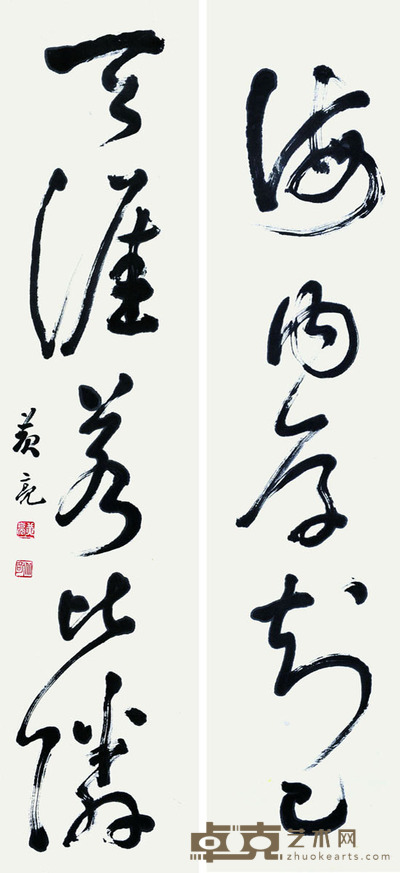 海内存知己
天涯若比隣
黄亮
卓克艺术网
zhuokearts.com